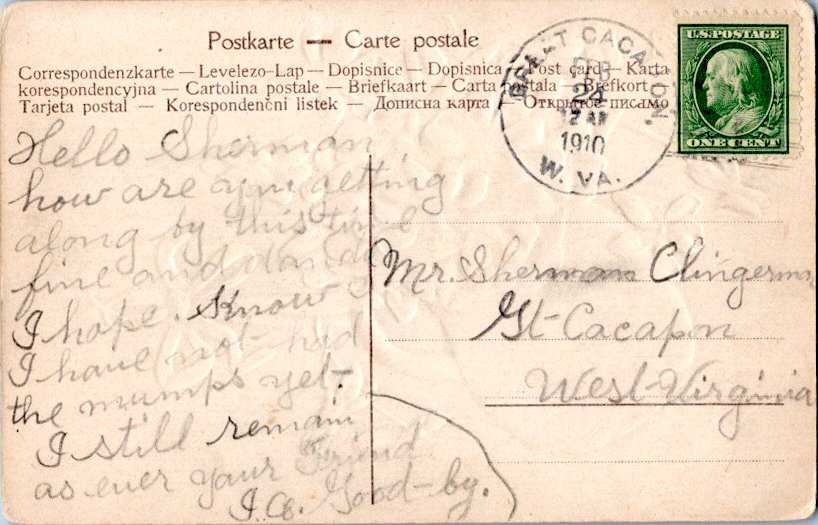 Postkarte — Carte postale
Correspondenzkarte — Levelezo-Lap — Dopisnice — Dopisnica — Post card — Karta
korespondencyjna — Cartolina postale — Briefkaart — Carta postala — Brefkort —
Tarjeta postal — Korespondenčni listek — Дописна карта — Открытое письмо
U.S. POSTAGE
ONE CENT
GREAT CACAPON.
FEB
12 AM
1910
W. VA.
Hello Sherman
how are you getting
along by this time
fine and dandy
I hope. Know
I have not had
the mumps yet.
I still remain
as ever your Friend
Good-by.
Mr. Sherman Clingerman
Gt-Cacapon
West-Virginia